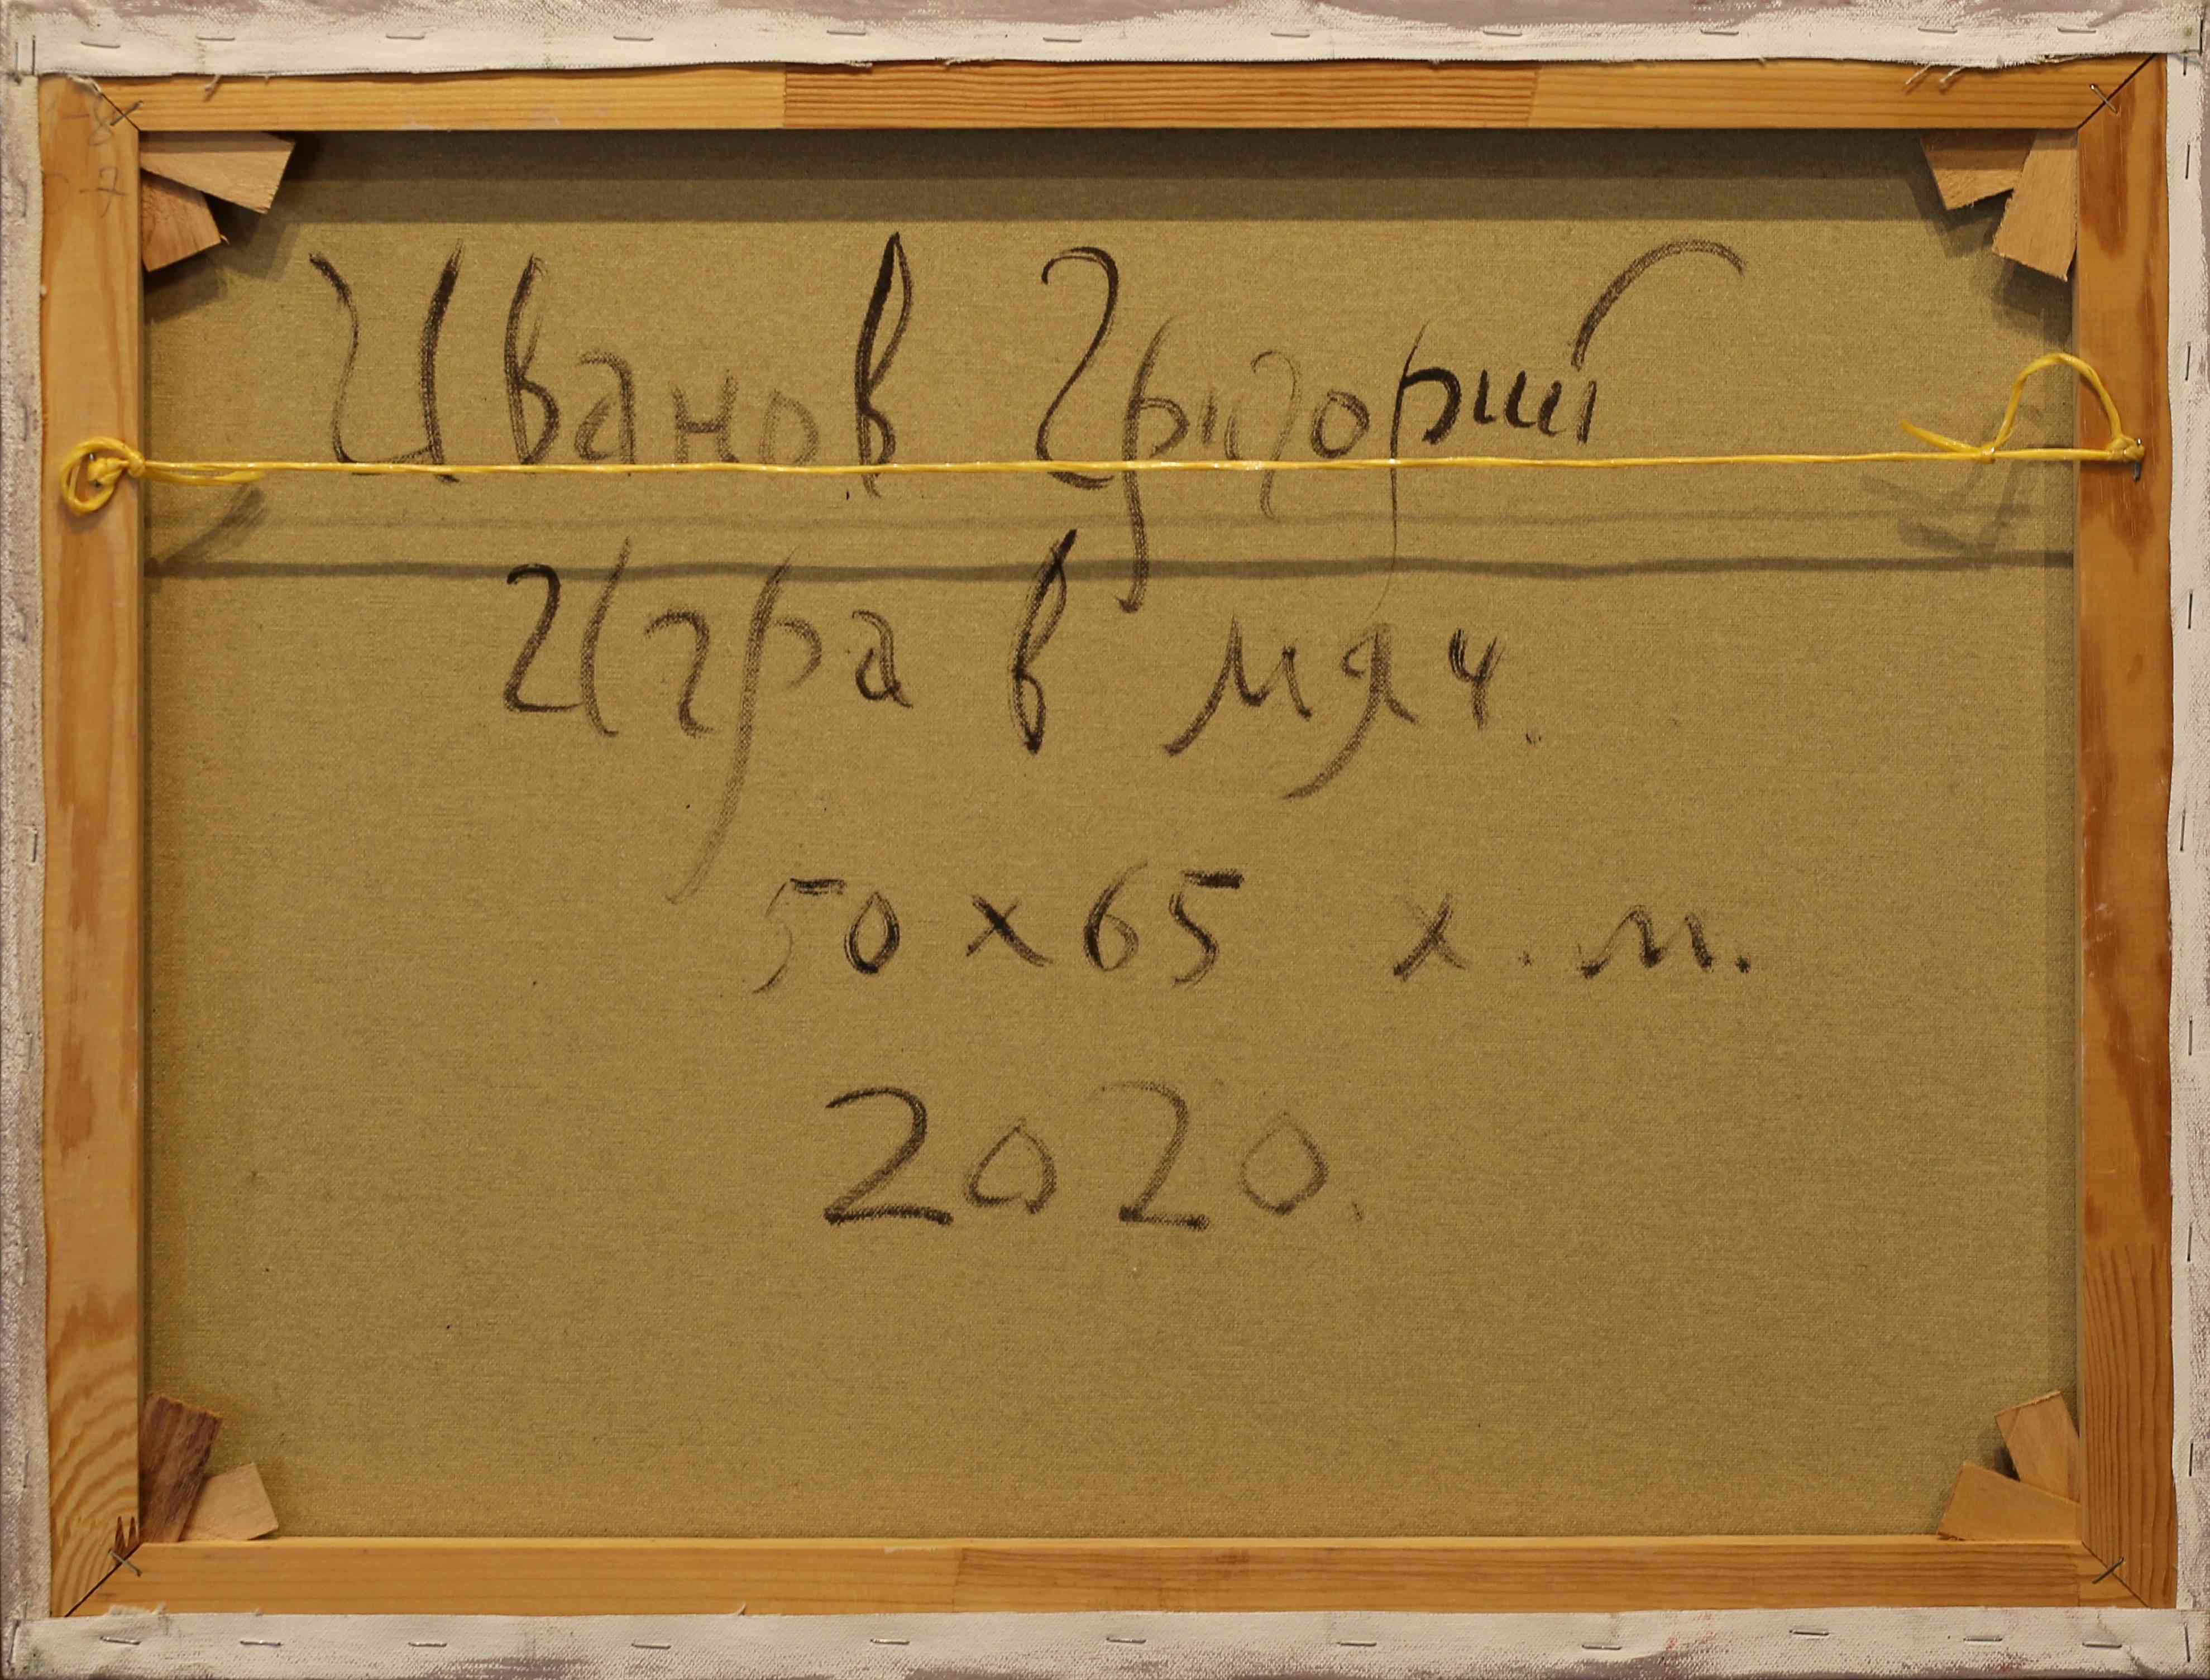 Иванов Григорий
Игра в мяч.
50х65 х.м.
2020.